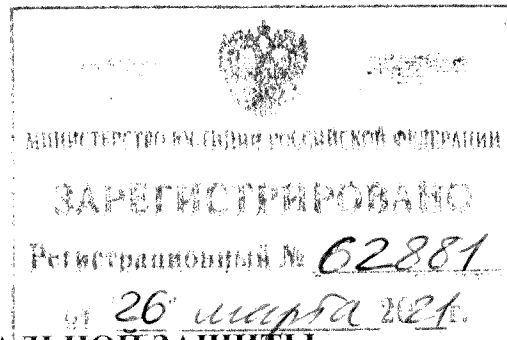 МИНИСТЕРСТВО ЮСТИЦИИ РОССИЙСКОЙ ФЕДЕРАЦИИ
ЗАРЕГИСТРИРОВАНО
Регистрационный № 62881
от "26" марта 2021г.
АЛЬНОЙ ЗАЩИТЫ